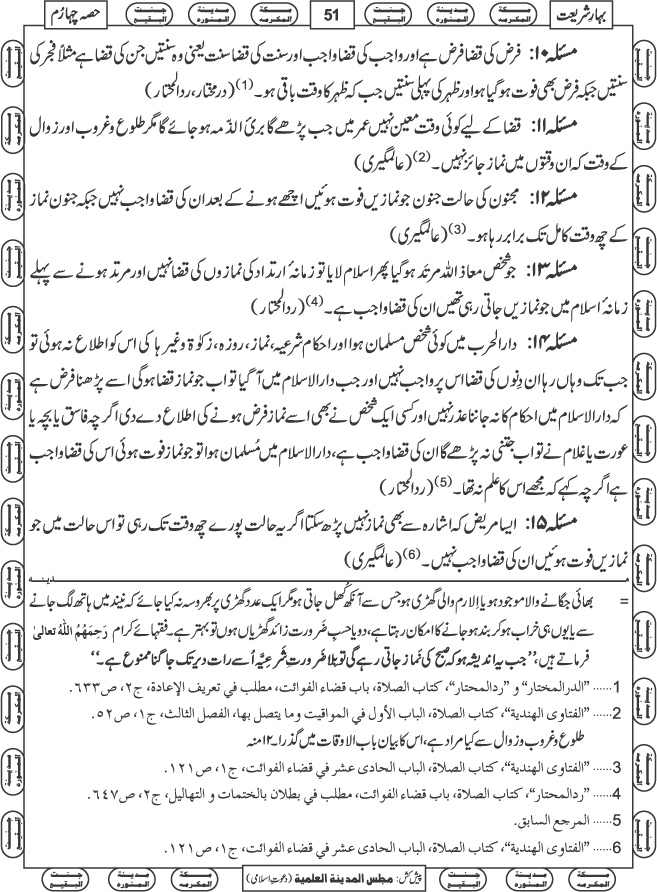 بہارِ شریعت
51
حصہ چہارم
مسئلہ ۱۰: فرض کی قضا فرض ہے اور واجب کی قضا واجب اور سنت کی قضا سنت یعنی وہ سنتیں جن کی قضا ہے مثلاً فجر کی
سنتیں جبکہ فرض بھی فوت ہوگیا ہو اور ظہر کی پہلی سنتیں جب کہ ظہر کا وقت باقی ہو۔(1) (درمختار، ردالمحتار)
مسئلہ ۱۱: قضا کے لیے کوئی وقت معین نہیں عمر میں جب پڑھے گا بریٔ الذّمہ ہو جائے گا مگر طلوع و غروب اور زوال
کے وقت کہ ان وقتوں میں نماز جائز نہیں۔(2) (عالمگیری)
مسئلہ ۱۲: مجنون کی حالت جنون جو نمازیں فوت ہوئیں اچھے ہونے کے بعد ان کی قضا واجب نہیں جبکہ جنون نماز
کے چھ وقت کامل تک برابر رہا ہو۔(3) (عالمگیری)
مسئلہ ۱۳: جو شخص معاذ اللہ مرتد ہوگیا پھر اسلام لایا تو زمانۂ ارتداد کی نمازوں کی قضا نہیں اور مرتد ہونے سے پہلے
زمانۂ اسلام میں جو نمازیں جاتی رہی تھیں ان کی قضا واجب ہے۔(4) (ردالمحتار)
مسئلہ ۱۴: دارالحرب میں کوئی شخص مسلمان ہوا اور احکام شرعیہ، نماز، روزہ، زکوٰۃ وغیرہا کی اس کو اطلاع نہ ہوئی تو
جب تک وہاں رہا ان دِنوں کی قضا اس پر واجب نہیں اور جب دارالاسلام میں آگیا تو اب جو نماز قضا ہوگی اسے پڑھنا فرض ہے
کہ دارالاسلام میں احکام کا نہ جاننا عذر نہیں اور کسی ایک شخص نے بھی اسے نماز فرض ہونے کی اطلاع دے دی اگرچہ فاسق یا بچہ یا
عورت یا غلام نے تو اب جتنی نہ پڑھے گا ان کی قضا واجب ہے، دارالاسلام میں مُسلمان ہوا تو جو نماز فوت ہوئی اس کی قضا واجب
ہے اگرچہ کہے کہ مجھے اس کا علم نہ تھا۔(5) (ردالمحتار)
مسئلہ ۱۵: ایسا مریض کہ اشارہ سے بھی نماز نہیں پڑھ سکتا اگر یہ حالت پورے چھ وقت تک رہی تو اس حالت میں جو
نمازیں فوت ہوئیں ان کی قضا واجب نہیں۔(6) (عالمگیری)
= بھائی جگانے والا موجود ہو یا اِلارم والی گھڑی ہو جس سے آنکھ کُھل جاتی ہو مگر ایک عدد گھڑی پر بھروسہ نہ کیا جائے کہ نیند میں ہاتھ لگ جانے
سے یا یوں ہی خراب ہوکر بند ہو جانے کا امکان رہتا ہے، دو یا حسبِ ضَرورت زائد گھڑیاں ہوں تو بہتر ہے۔ فقہائے کرام رَحِمَهُمُ اللهُ تعالیٰ
فرماتے ہیں، ’’جب یہ اندیشہ ہو کہ صبح کی نماز جاتی رہے گی تو بلا ضَرورتِ شَرعِیَّہ اُسے رات دیر تک جاگنا ممنوع ہے۔‘‘
1...... "الدرالمختار" و "ردالمحتار"، كتاب الصلاة، باب قضاء الفوائت، مطلب في تعريف الإعادة، ج٢، ص٦٣٣.
2...... "الفتاوى الهندية"، كتاب الصلاة، الباب الأول في المواقيت وما يتصل بها، الفصل الثالث، ج١، ص٥٢.
طلوع وغروب وزوال سے کیا مراد ہے، اس کا بیان باب الاوقات میں گذرا۔ ۱۲منہ
3...... "الفتاوى الهندية"، كتاب الصلاة، الباب الحادي عشر في قضاء الفوائت، ج١، ص١٢١.
4...... "ردالمحتار"، كتاب الصلاة، باب قضاء الفوائت، مطلب في بطلان بالختمات و التهاليل، ج٢، ص٦٤٧.
5...... المرجع السابق.
6...... "الفتاوى الهندية"، كتاب الصلاة، الباب الحادي عشر في قضاء الفوائت، ج١، ص١٢١.
پیش کش: مجلس المدينة العلمية (دعوتِ اسلامی)